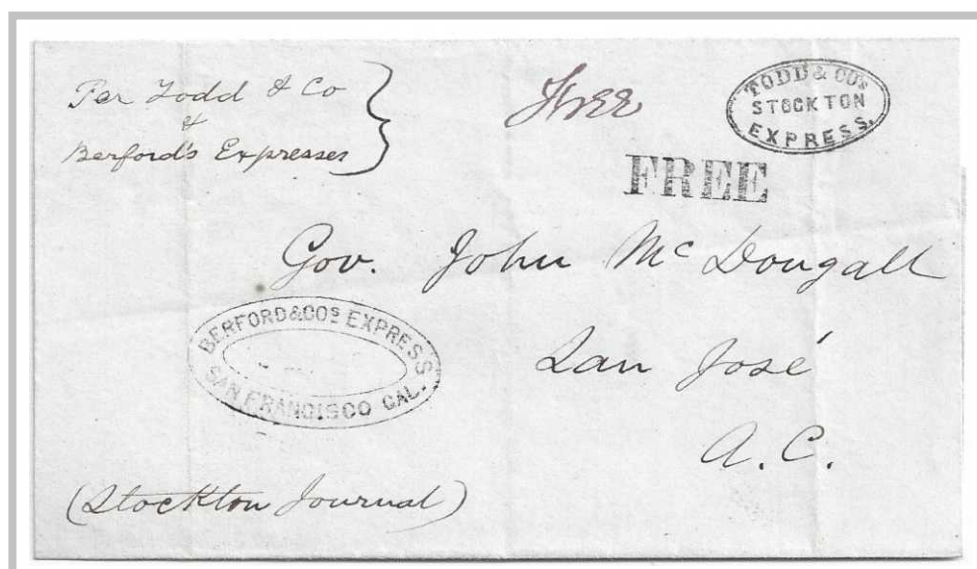 Per Todd & Co
&
Berford's Expresses
Free
TODD & COS
STOCKTON
EXPRESS.
FREE
Gov. John McDougall
San José
A. C.
BERFORD & COS EXPRESS
SAN FRANCISCO CAL.
(Stockton Journal)